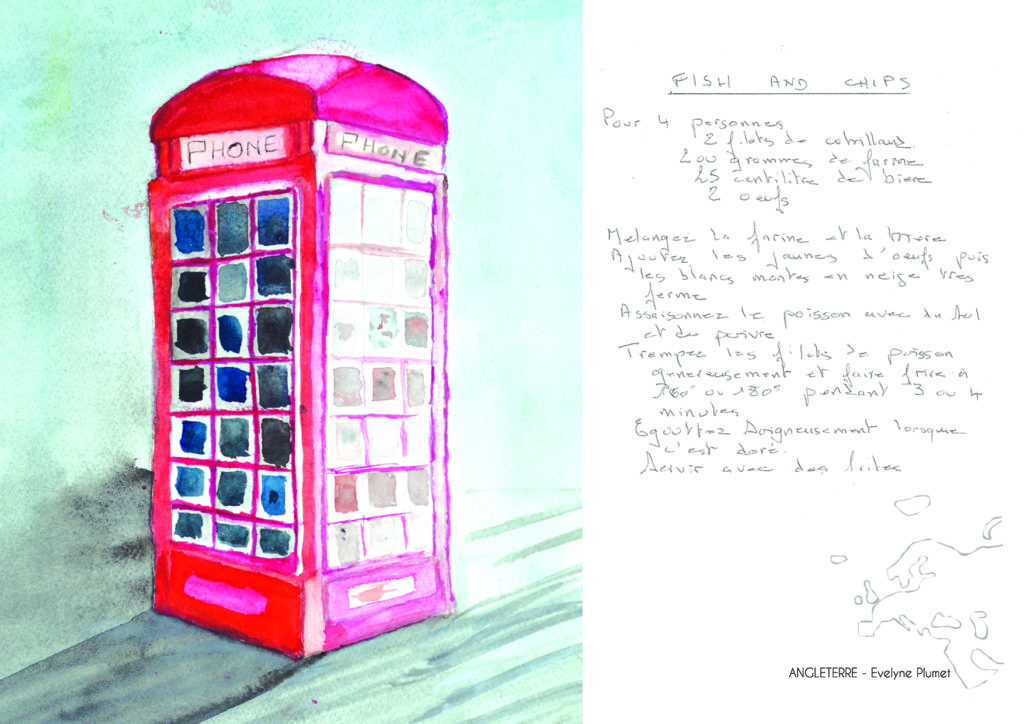 PHONE
PHONE
FISH AND CHIPS
Pour 4 personnes
2 filets de cabillaud
200 grammes de farine
25 centilitre de biere
2 oeufs
Melangez la farine et la biere
Ajoutez les jaunes d'oeufs puis
les blancs montes en neige tres
ferme
Assaisonnez le poisson avec du sel
et du poivre
Trempez les filets de poisson
genereusement et faire frire à
160° ou 180° pendant 3 ou 4
minutes
Egouttez soigneusement lorsque
c'est doré.
Servir avec des frites
ANGLETERRE - Evelyne Plumet